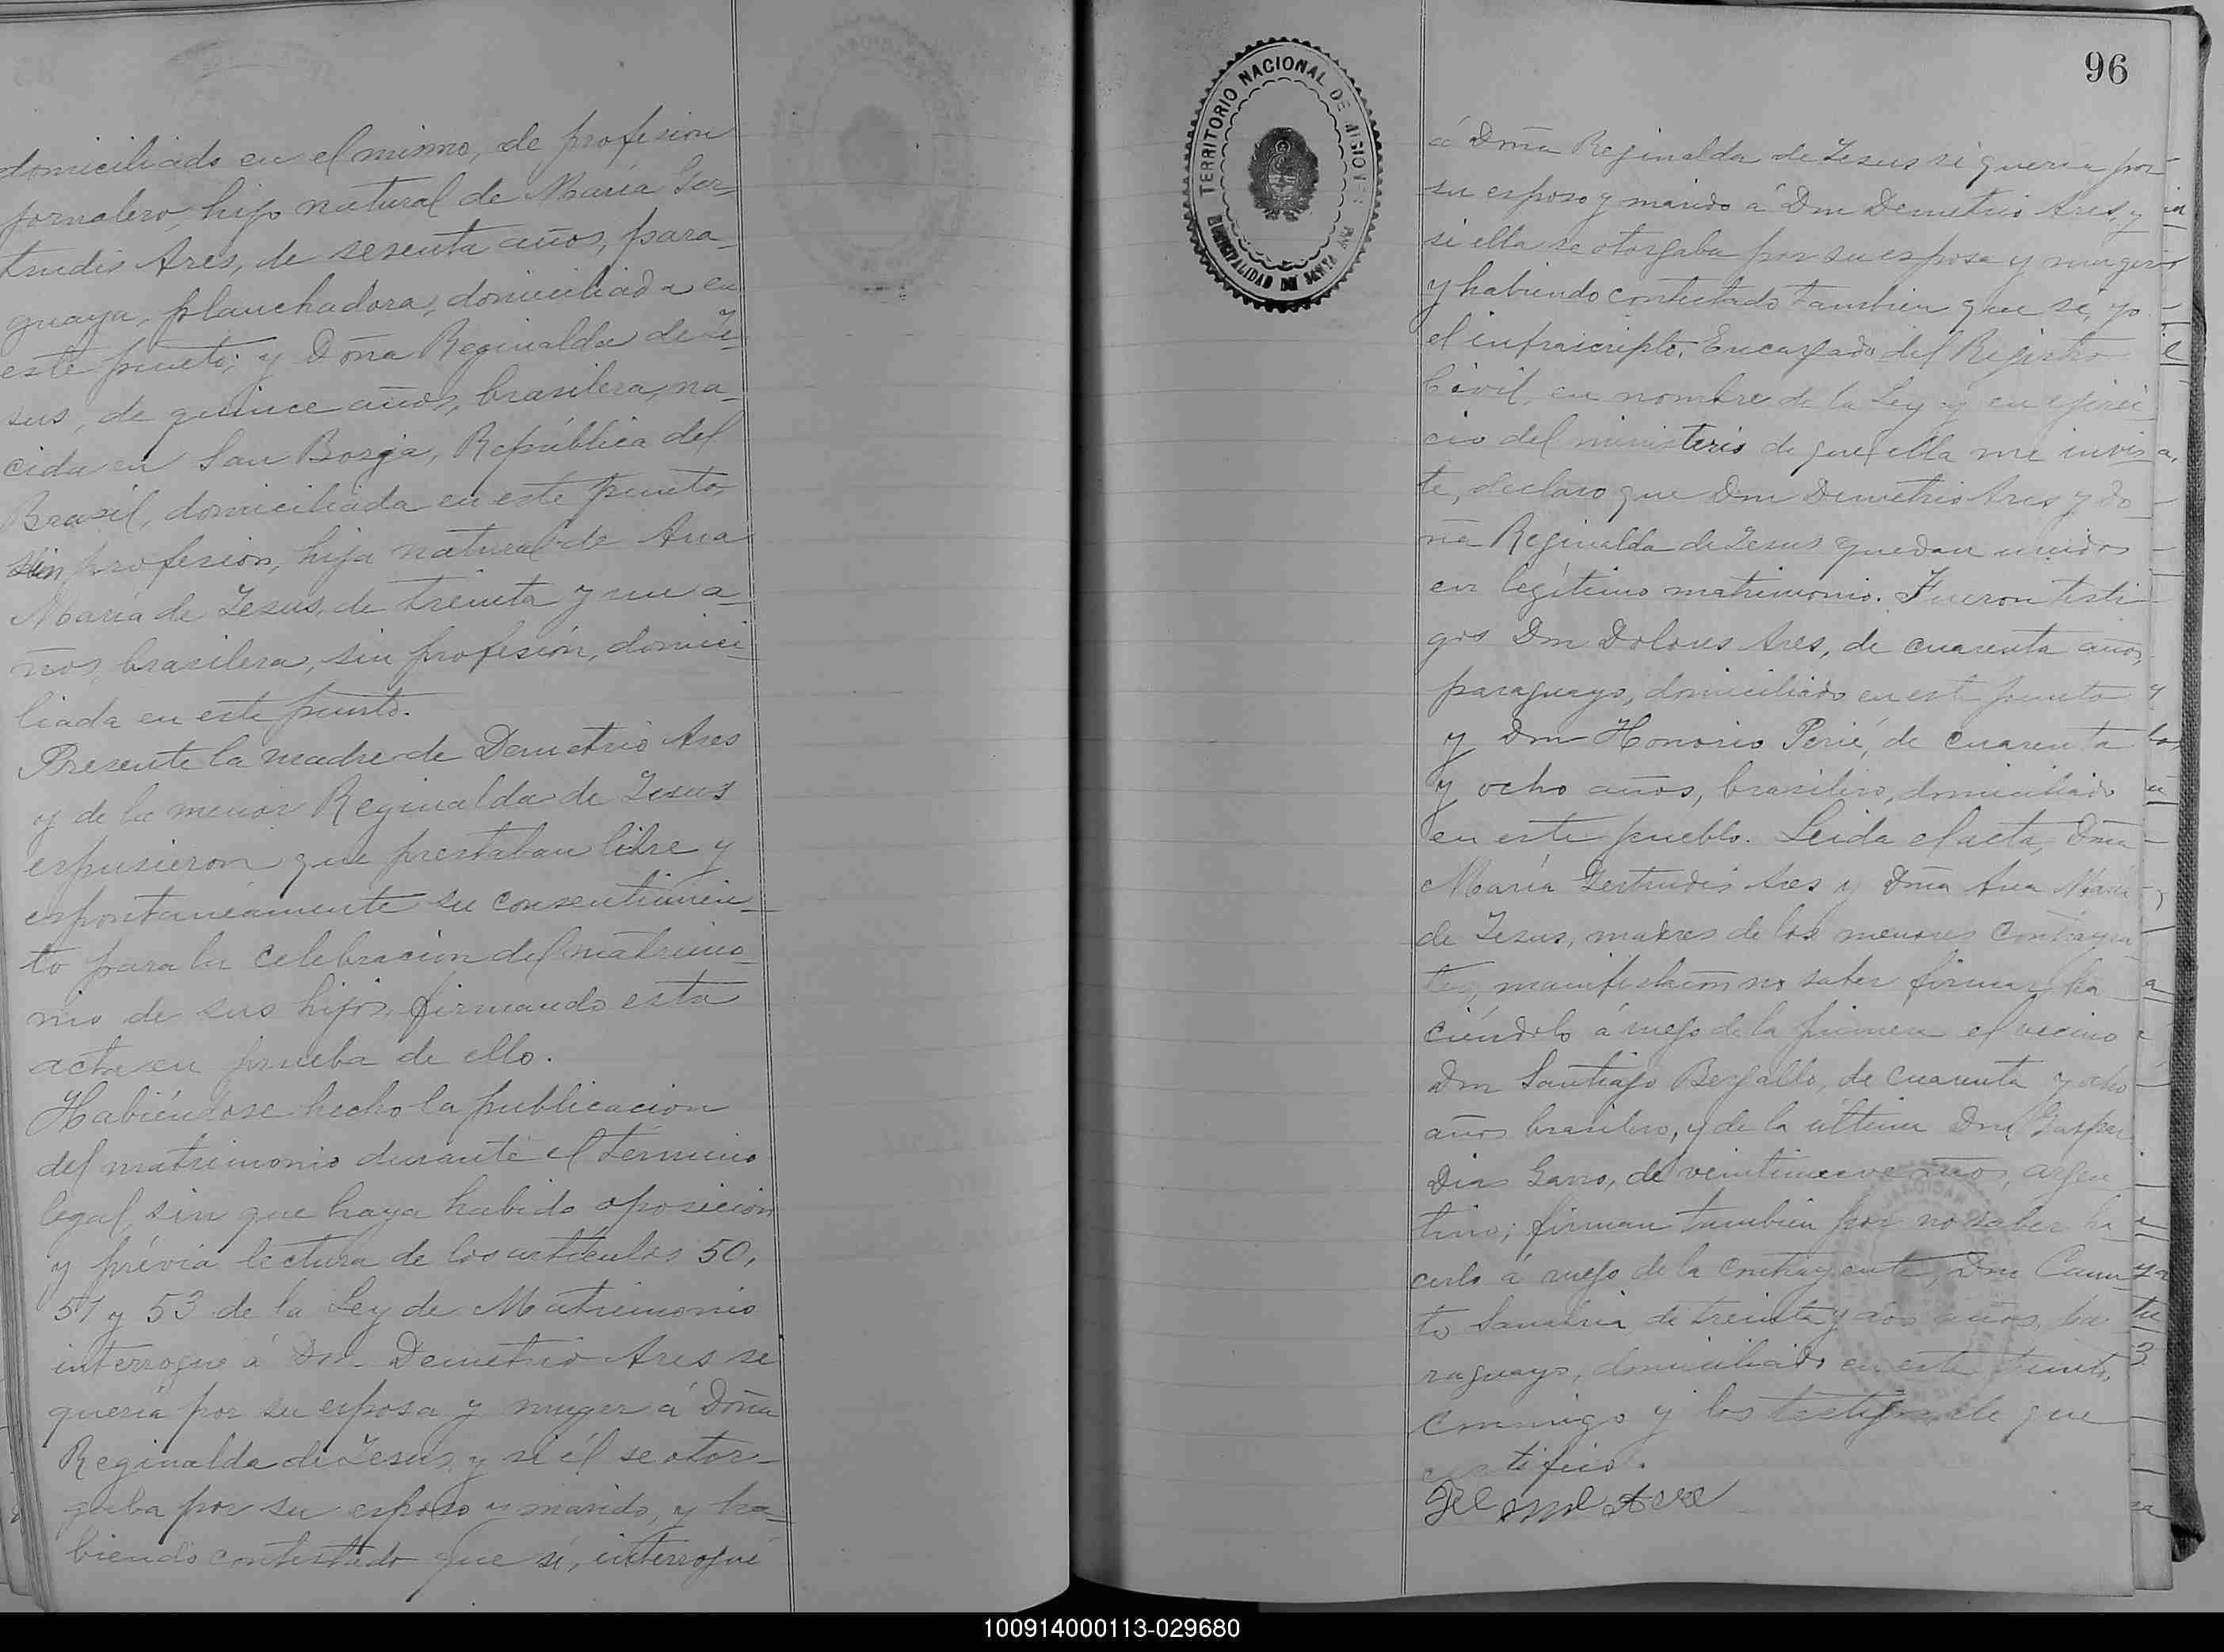 domiciliado en el mismo, de profesion
jornalero, hijo natural de María Ger-
trudis Ares, de sesenta años, para-
guaya, planchadora, domiciliada en
este punto; y Doña Reginalda de Je-
sus, de quince años, brasilera, na-
cida en San Borja, República del
Brasil, domiciliada en este punto,
sin profesion, hija natural de Ana
María de Jesus, de treinta y un a-
ños, brasilera, sin profesión, domici-
liada en este punto.
Presente la madre de Demetrio Ares
y de la menor Reginalda de Jesus
espusieron que prestaban libre y
espontaneamente su consentimien-
to para la celebracion del matrimo-
nio de sus hijos, firmando esta
acta en prueba de ello.
Habiéndose hecho la publicacion
del matrimonio durante el término
legal, sin que haya habido oposicion
y prévia lectura de los artículos 50,
51 y 53 de la Ley de Matrimonio
interrogue á Dn. Demetrio Ares se
queria por su esposa y muger á Doña
Reginalda de Jesus y si él se otor-
gaba por su esposo y marido, y ha-
biendo contestado que si, interrogué
96
TERRITORIO NACIONAL DE MISIONES
MUNICIPALIDAD DE SANTA ANA
á Dña Reginalda de Jesus si queria por
su esposo y marido á Dn Demetrio Ares, y
si ella se otorgaba por su esposa y muger
y habiendo contestado tambien que se, yo
el infrascripto, Encargado del Registro
Civil, en nombre de la Ley y en ejerci-
cio del ministerio de que ella me invis-
te, declaro que Dn Demetrio Ares y Do-
ña Reginalda de Jesus quedan unidos
en legítimo matrimonio. Fueron testi-
gos Dn Dolores Ares, de cuarenta años,
paraguayo, domiciliado en este punto
y Dn Honorio Perié, de cuarenta
y ocho años, brasilero, domiciliado
en este pueblo. Leida el acta, Dña
María Gertrudis Ares y Dña Ana María
de Jesus, madres de los menores contrayen
tes, manifestaron no saber firmar, ha-
ciéndolo á ruego de la primera el vecino
Dn Santiago Bergallo, de cuarenta y ocho
años brasilero, y de la última Dn Gaspar
Dias Garro, de veintinueve años, argen
tino; firman tambien por no saber ha-
cerlo á ruego de la contrayente, Dn Canu
to Sanabria de treinta y dos años, pa
raguayo, domiciliado en este punto,
conmigo y los testigos, de que
certifico.
100914000113-029680